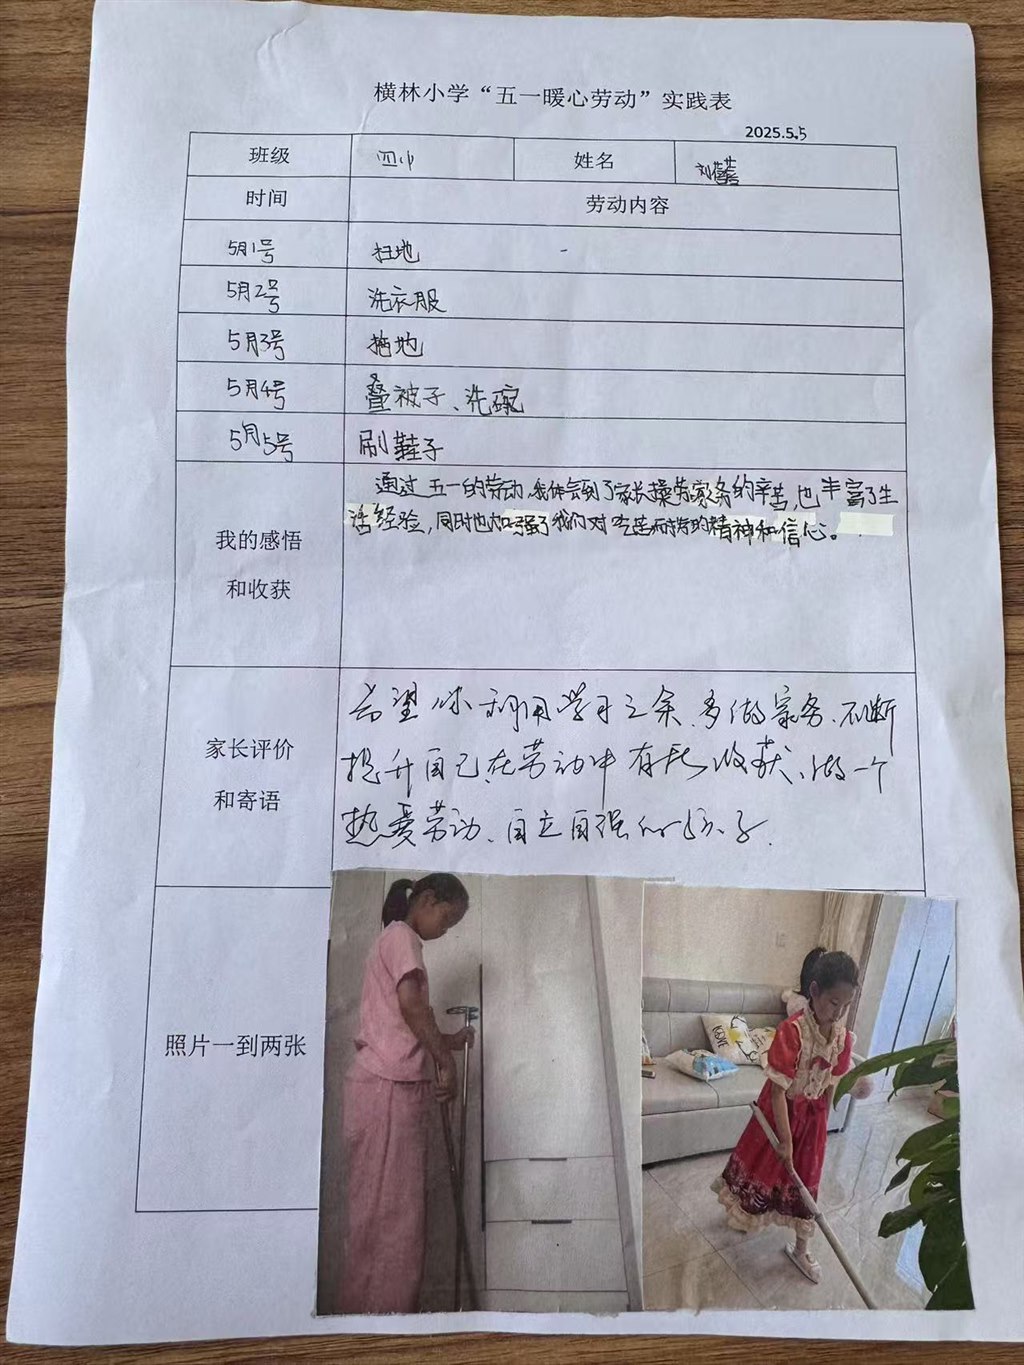 横林小学“五一暖心劳动”实践表
2025.5.5
班级 四 姓名 刘
时间 劳动内容
5月1号 扫地
5月2号 洗衣服
5月3号 拖地
5月4号 叠被子、洗碗
5月5号 刷鞋子
我的感悟
和收获
通过五一的劳动,我体会到了家长操劳家务的辛苦,也丰富了生
活经验,同时也加强了我们对吃苦耐劳的精神和信心。
家长评价
和寄语
希望你利用学习之余、多做家务、不断
提升自己,在劳动中有所收获、做一个
热爱劳动、自立自强的孩子.
照片一到两张